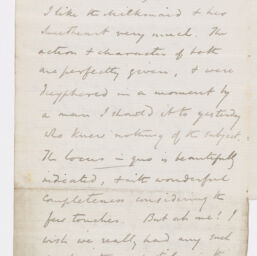 I like the Milkmaid & her
sweetheart very much. The
action & character of both
are perfectly given, & were
deciphered in a moment by
a man I showed it to yesterday
who knew nothing of the subject.
The locus in quo is beautifully
indicated, & with wonderful
completeness considering the
few touches. But ah me! I
wish we really had any such